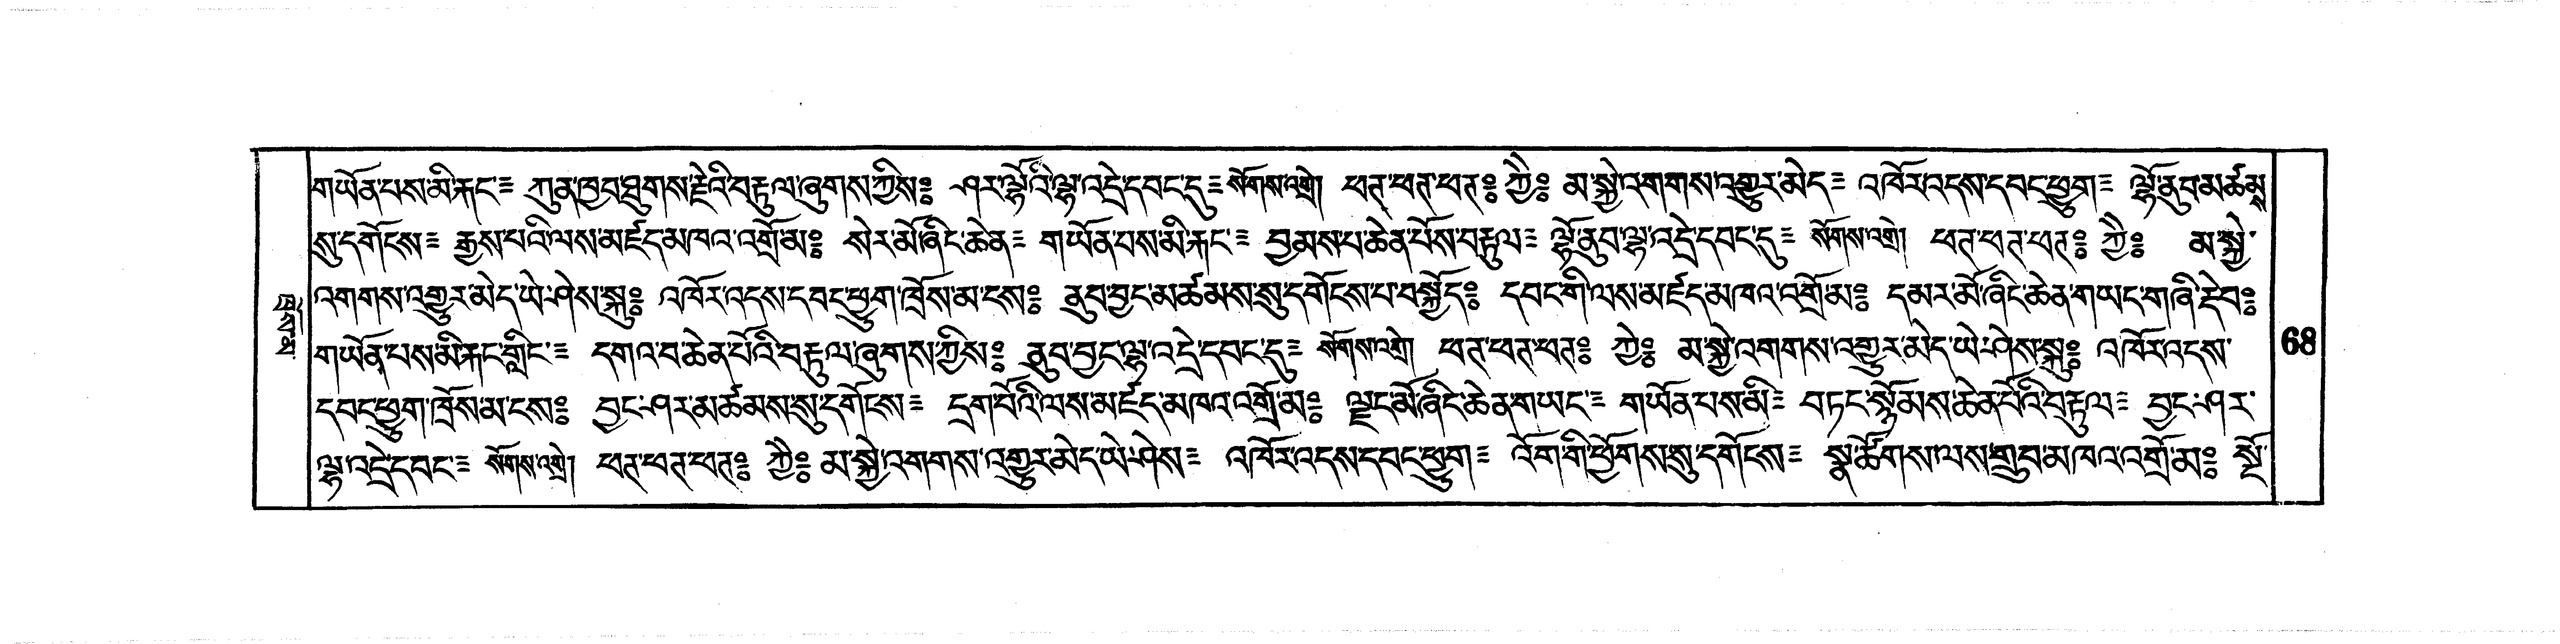 གཡོན་པས་མི་རྐང་༔ ཀུན་ཁྱབ་ཐུགས་རྗེའི་བརྟུལ་ཞུགས་ཀྱིས༔ ཤར་ལྷོའི་ལྷ་འདྲེ་དབང་དུ༔ སོགས་འགྲེ། ཕཊ་ཕཊ་ཕཊ༔ ཀྱཻ༔ མ་སྐྱེ་འགགས་འགྱུར་མེད༔ འཁོར་འདས་དབང་ཕྱུག༔ ལྷོ་ནུབ་མཚམས
སུ་དགོངས༔ རྒྱས་པའི་ལས་མཛད་མཁའ་འགྲོ་མ༔ སེར་མོ་ཞིང་ཆེན༔ གཡོན་པས་མི་རྐང་༔ བྱམས་པ་ཆེན་པོས་བརྟུལ༔ ལྷོ་ནུབ་ལྷ་འདྲེ་དབང་དུ༔ སོགས་འགྲེ། ཕཊ་ཕཊ་ཕཊ༔ ཀྱཻ༔ མ་སྐྱེ་
འགགས་འགྱུར་མེད་ཡེ་ཤེས་སྐུ༔ འཁོར་འདས་དབང་ཕྱུག་ཁྲོས་མ་ངས༔ ནུབ་བྱང་མཚམས་སུ་དགོངས་པ་བསྐྱོད༔ དབང་གི་ལས་མཛད་མཁའ་འགྲོ་མ༔ དམར་མོ་ཞིང་ཆེན་གཡང་གཞི་རྡེབ༔
གཡོན་པས་མི་རྐང་གླིང་༔ དགའ་བ་ཆེན་པོའི་བརྟུལ་ཞུགས་ཀྱིས༔ ནུབ་བྱང་ལྷ་འདྲེ་དབང་དུ༔ སོགས་འགྲེ། ཕཊ་ཕཊ་ཕཊ༔ ཀྱེ༔ མ་སྐྱེ་འགགས་འགྱུར་མེད་ཡེ་ཤེས་སྐུ༔ འཁོར་འདས་
དབང་ཕྱུག་ཁྲོས་མ་ངས༔ བྱང་ཤར་མཚམས་སུ་དགོངས༔ དྲག་པོའི་ལས་མཛད་མཁའ་འགྲོ་མ༔ ལྗང་མོ་ཞིང་ཆེན་གཡང་༔ གཡོན་པས་མི༔ བཏང་སྙོམས་ཆེན་པོའི་བརྟུལ༔ བྱང་ཤར་
ལྷ་འདྲེ་དབང་༔ སོགས་འགྲེ། ཕཊ་ཕཊ་ཕཊ༔ ཀྱཻ༔ མ་སྐྱེ་འགགས་འགྱུར་མེད་ཡེ་ཤེས༔ འཁོར་འདས་དབང་ཕྱུག༔ འོག་གི་ཕྱོགས་སུ་དགོངས༔ སྣ་ཚོགས་ལས་གྲུབ་མཁའ་འགྲོ་མ༔ སྔོ་
68